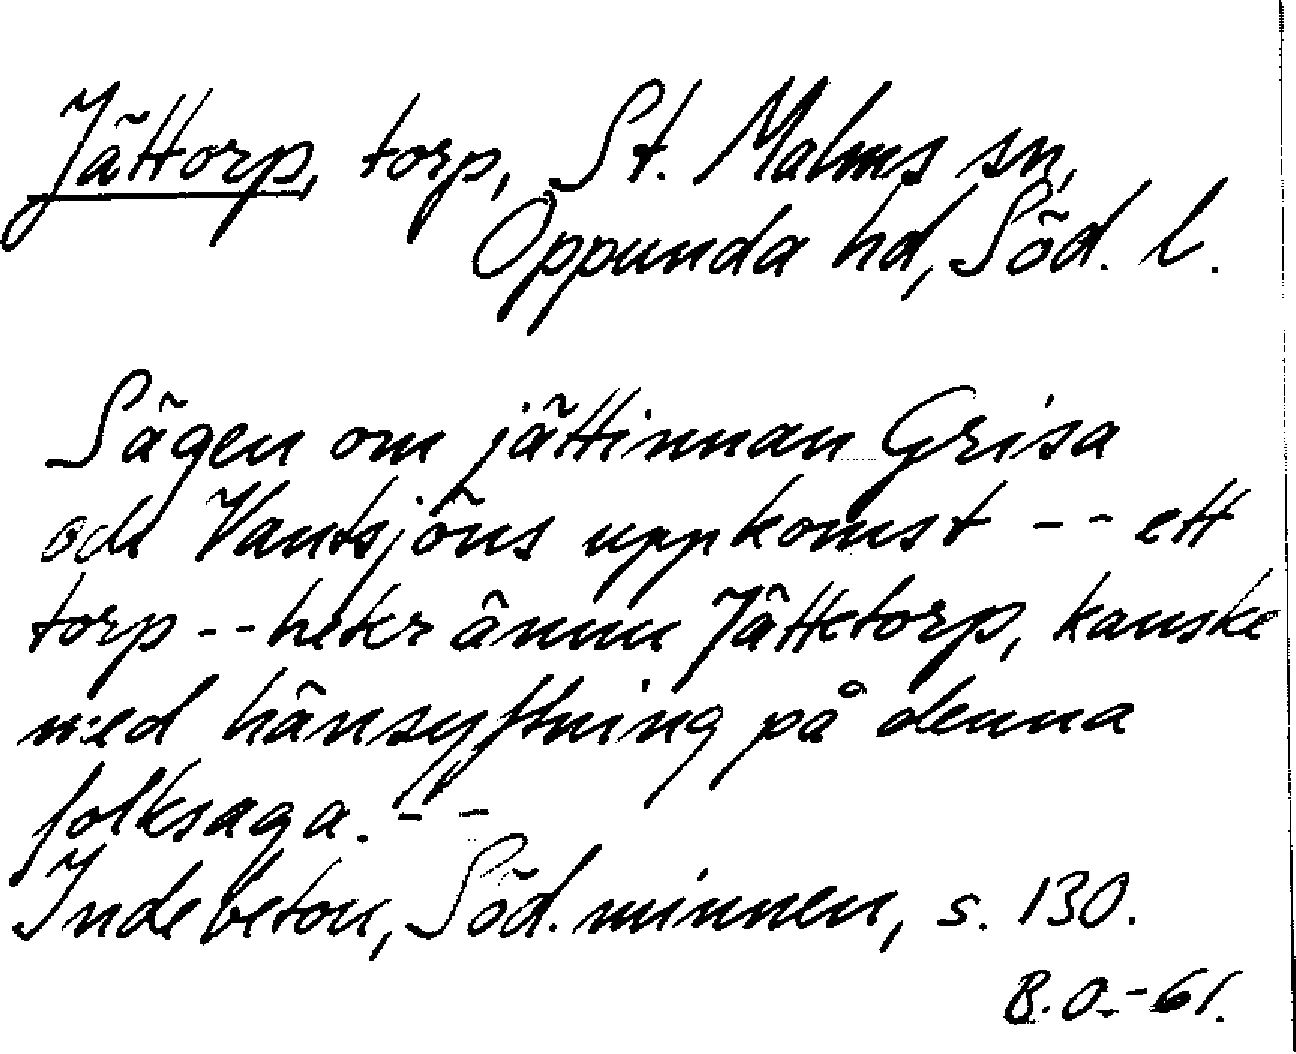 Jättorp, torp, St. Malms sn,
Oppunda hd, Söd. l.
Sägen om jättinnan Grisa
och Vantsjöns uppkomst -- ett
torp -- heter ännu Jättetorp, kanske
med hänsyftning på denna
folksaga. --
Indebetou, Söd. minnen, s. 130.
B.O.-61.